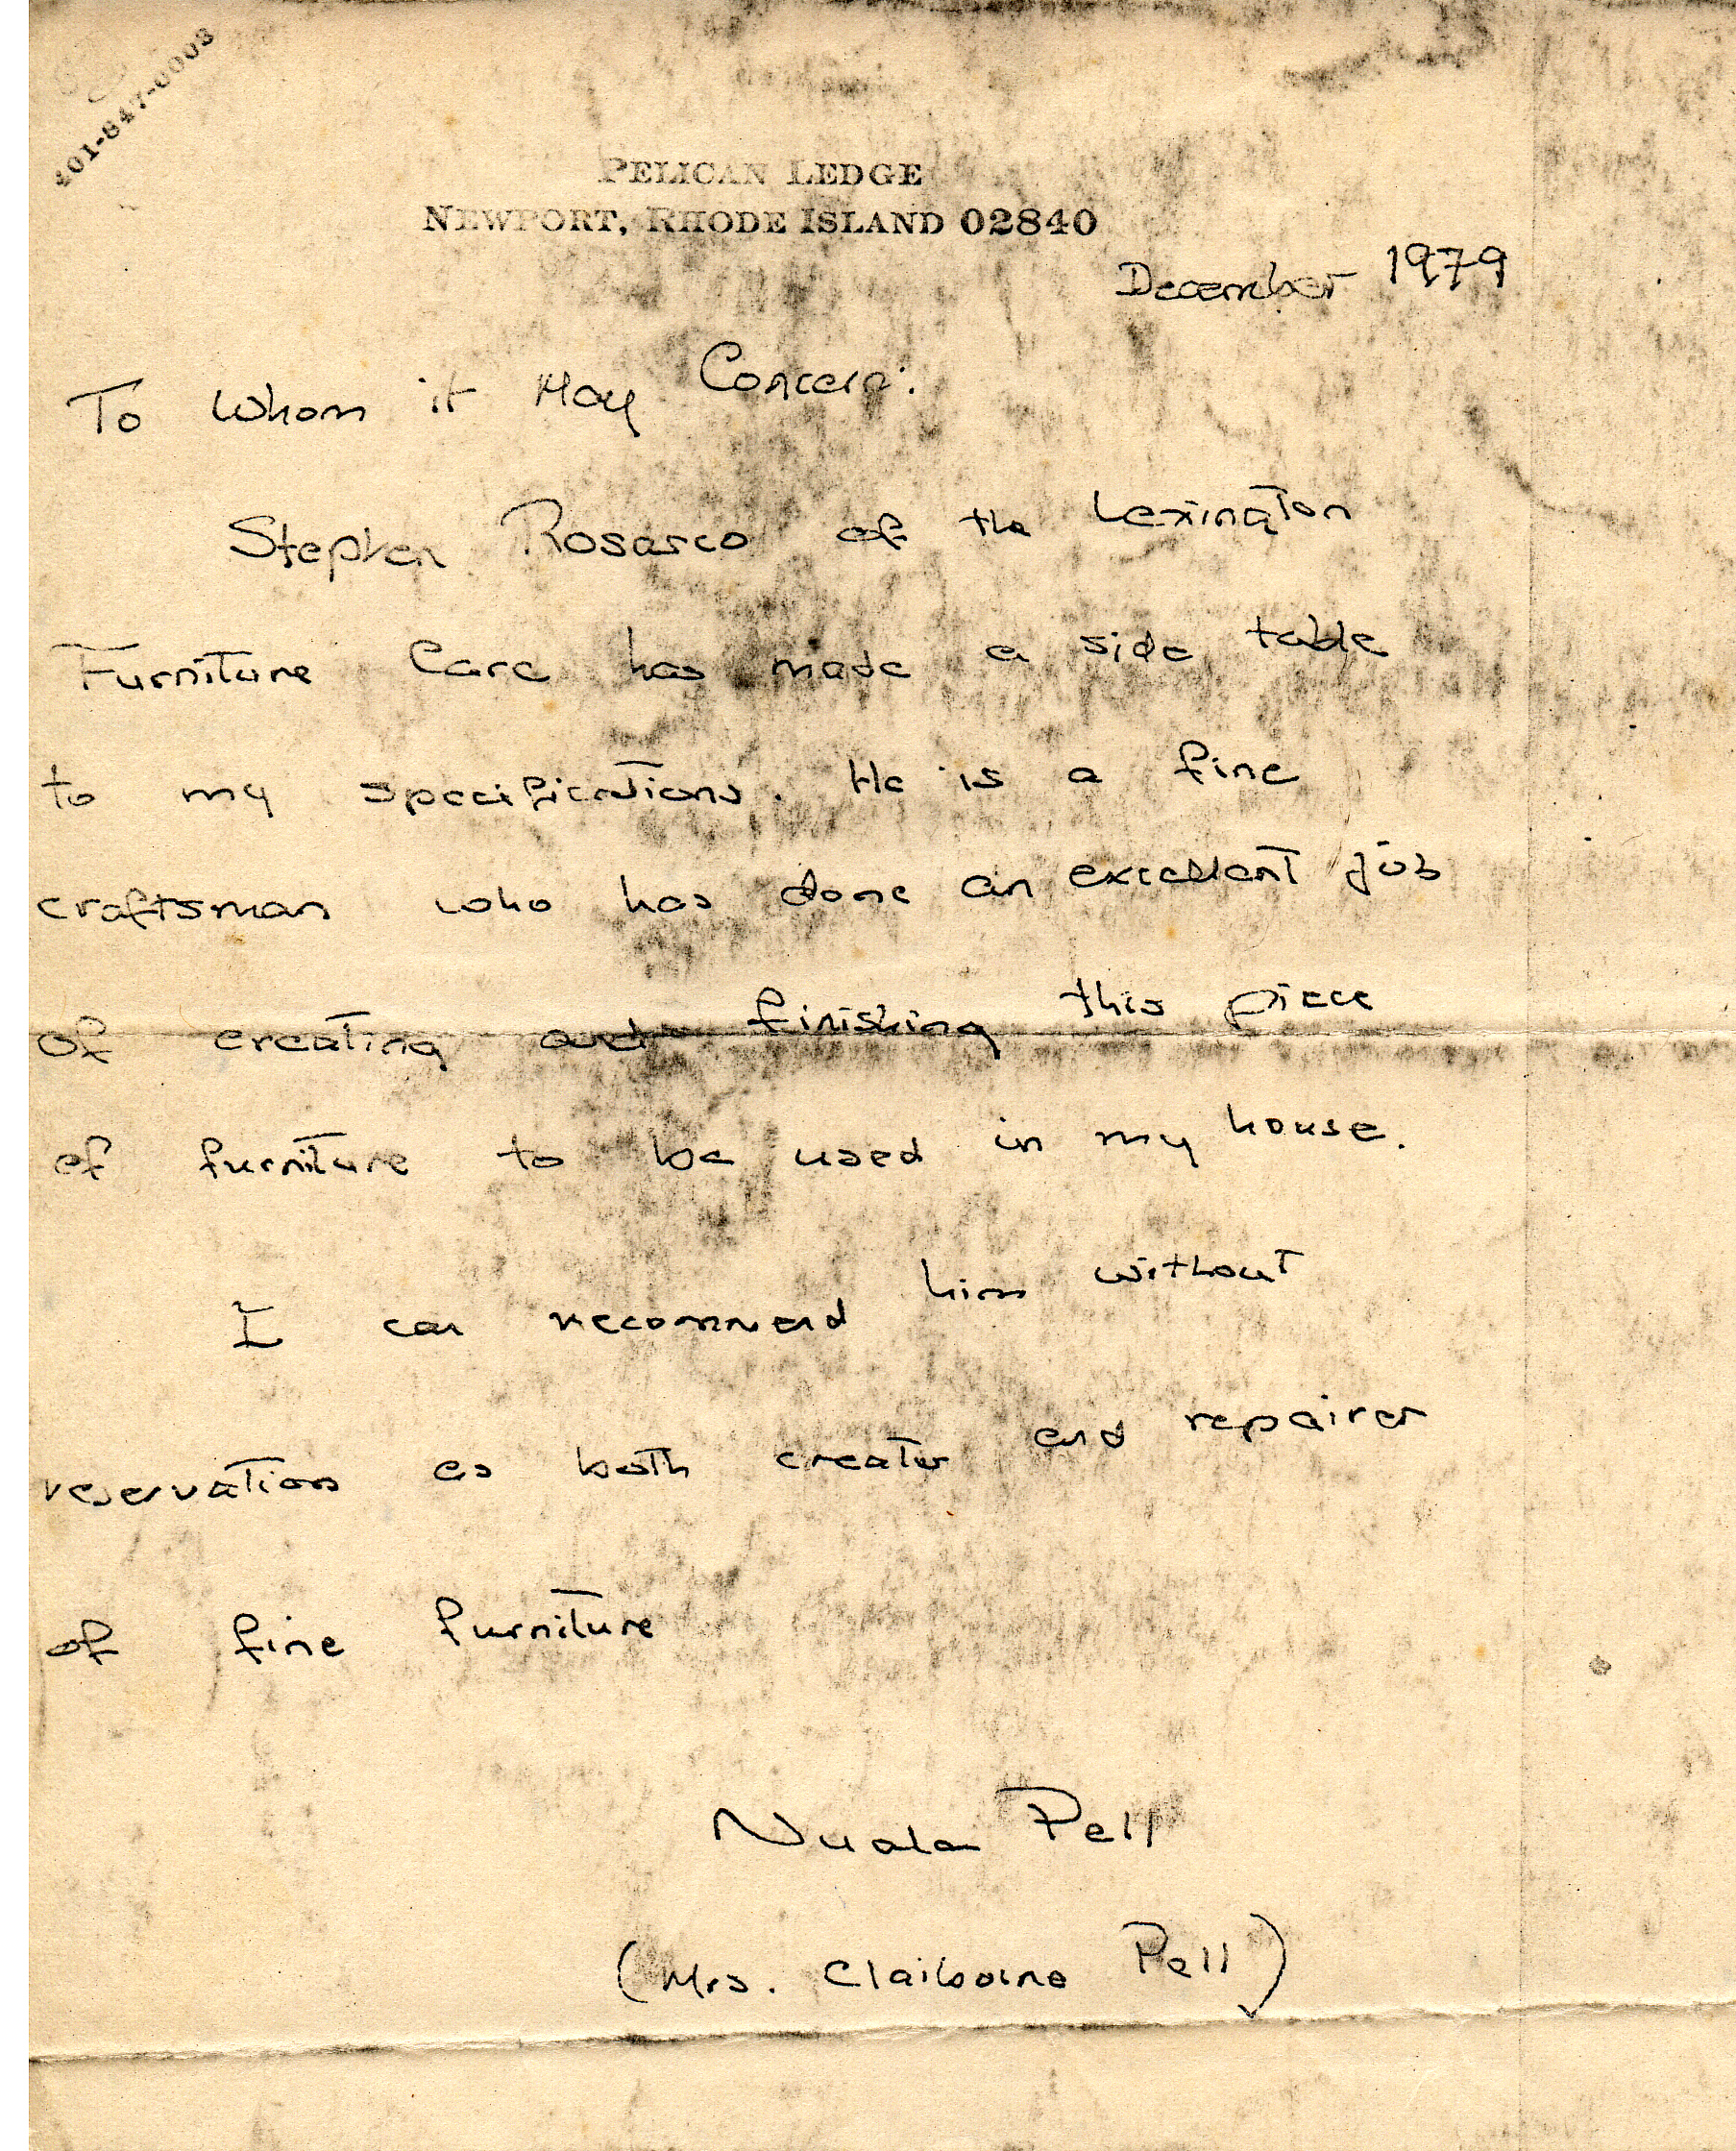 401-847-0003
PELICAN LEDGE
NEWPORT, RHODE ISLAND 02840
December 1979
To Whom it May Concern:
Stephen Rosasco of the Lexington
Furniture Care has made a side table
to my specifications. He is a fine
craftsman who has done an excellent job
of creating and finishing this piece
of furniture to be used in my house.
I can recommend him without
reservation as both creator and repairer
of fine furniture
Nuala Pell
(Mrs. Claiborne Pell)